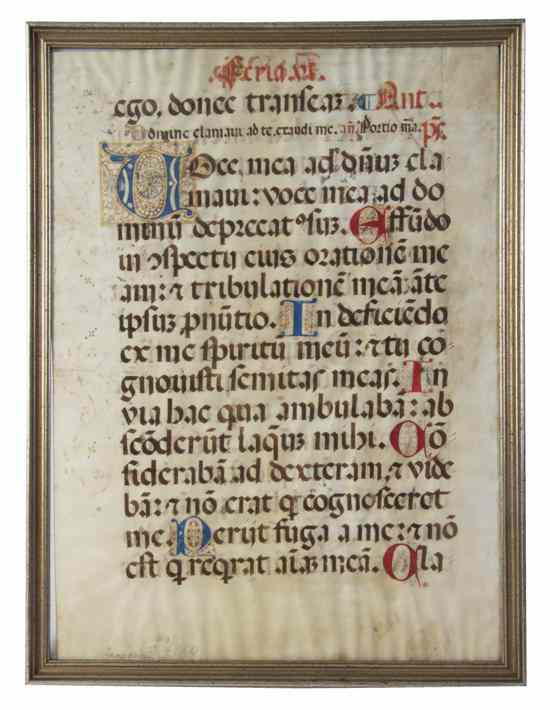 Feria vi.
ego, donec transeaʒ. Ant.
domine clamaui ad te, exaudi me. an̄. Portio m̄a. ps̄.
VOce mea ad dn̄uʒ cla
maui: voce mea ad do
minū deprecatꝰ suʒ. Effūdo
in ɔspectu eius orationē me
am: ⁊ tribulationē meā āte
ipsuʒ pnūtio. In deficiēdo
ex me spiritū meū: ⁊ tu co
gnouisti semitas meas. In
via hac qua ambulabā: ab
scōderūt laqʒ̄ mihi. Cō
siderabā ad dexteram, ⁊ vide
bā: ⁊ nō erat q̄ cognosceret
me. Periit fuga a me: ⁊ nō
est q̄ reqrat aīaʒ meā. Cla